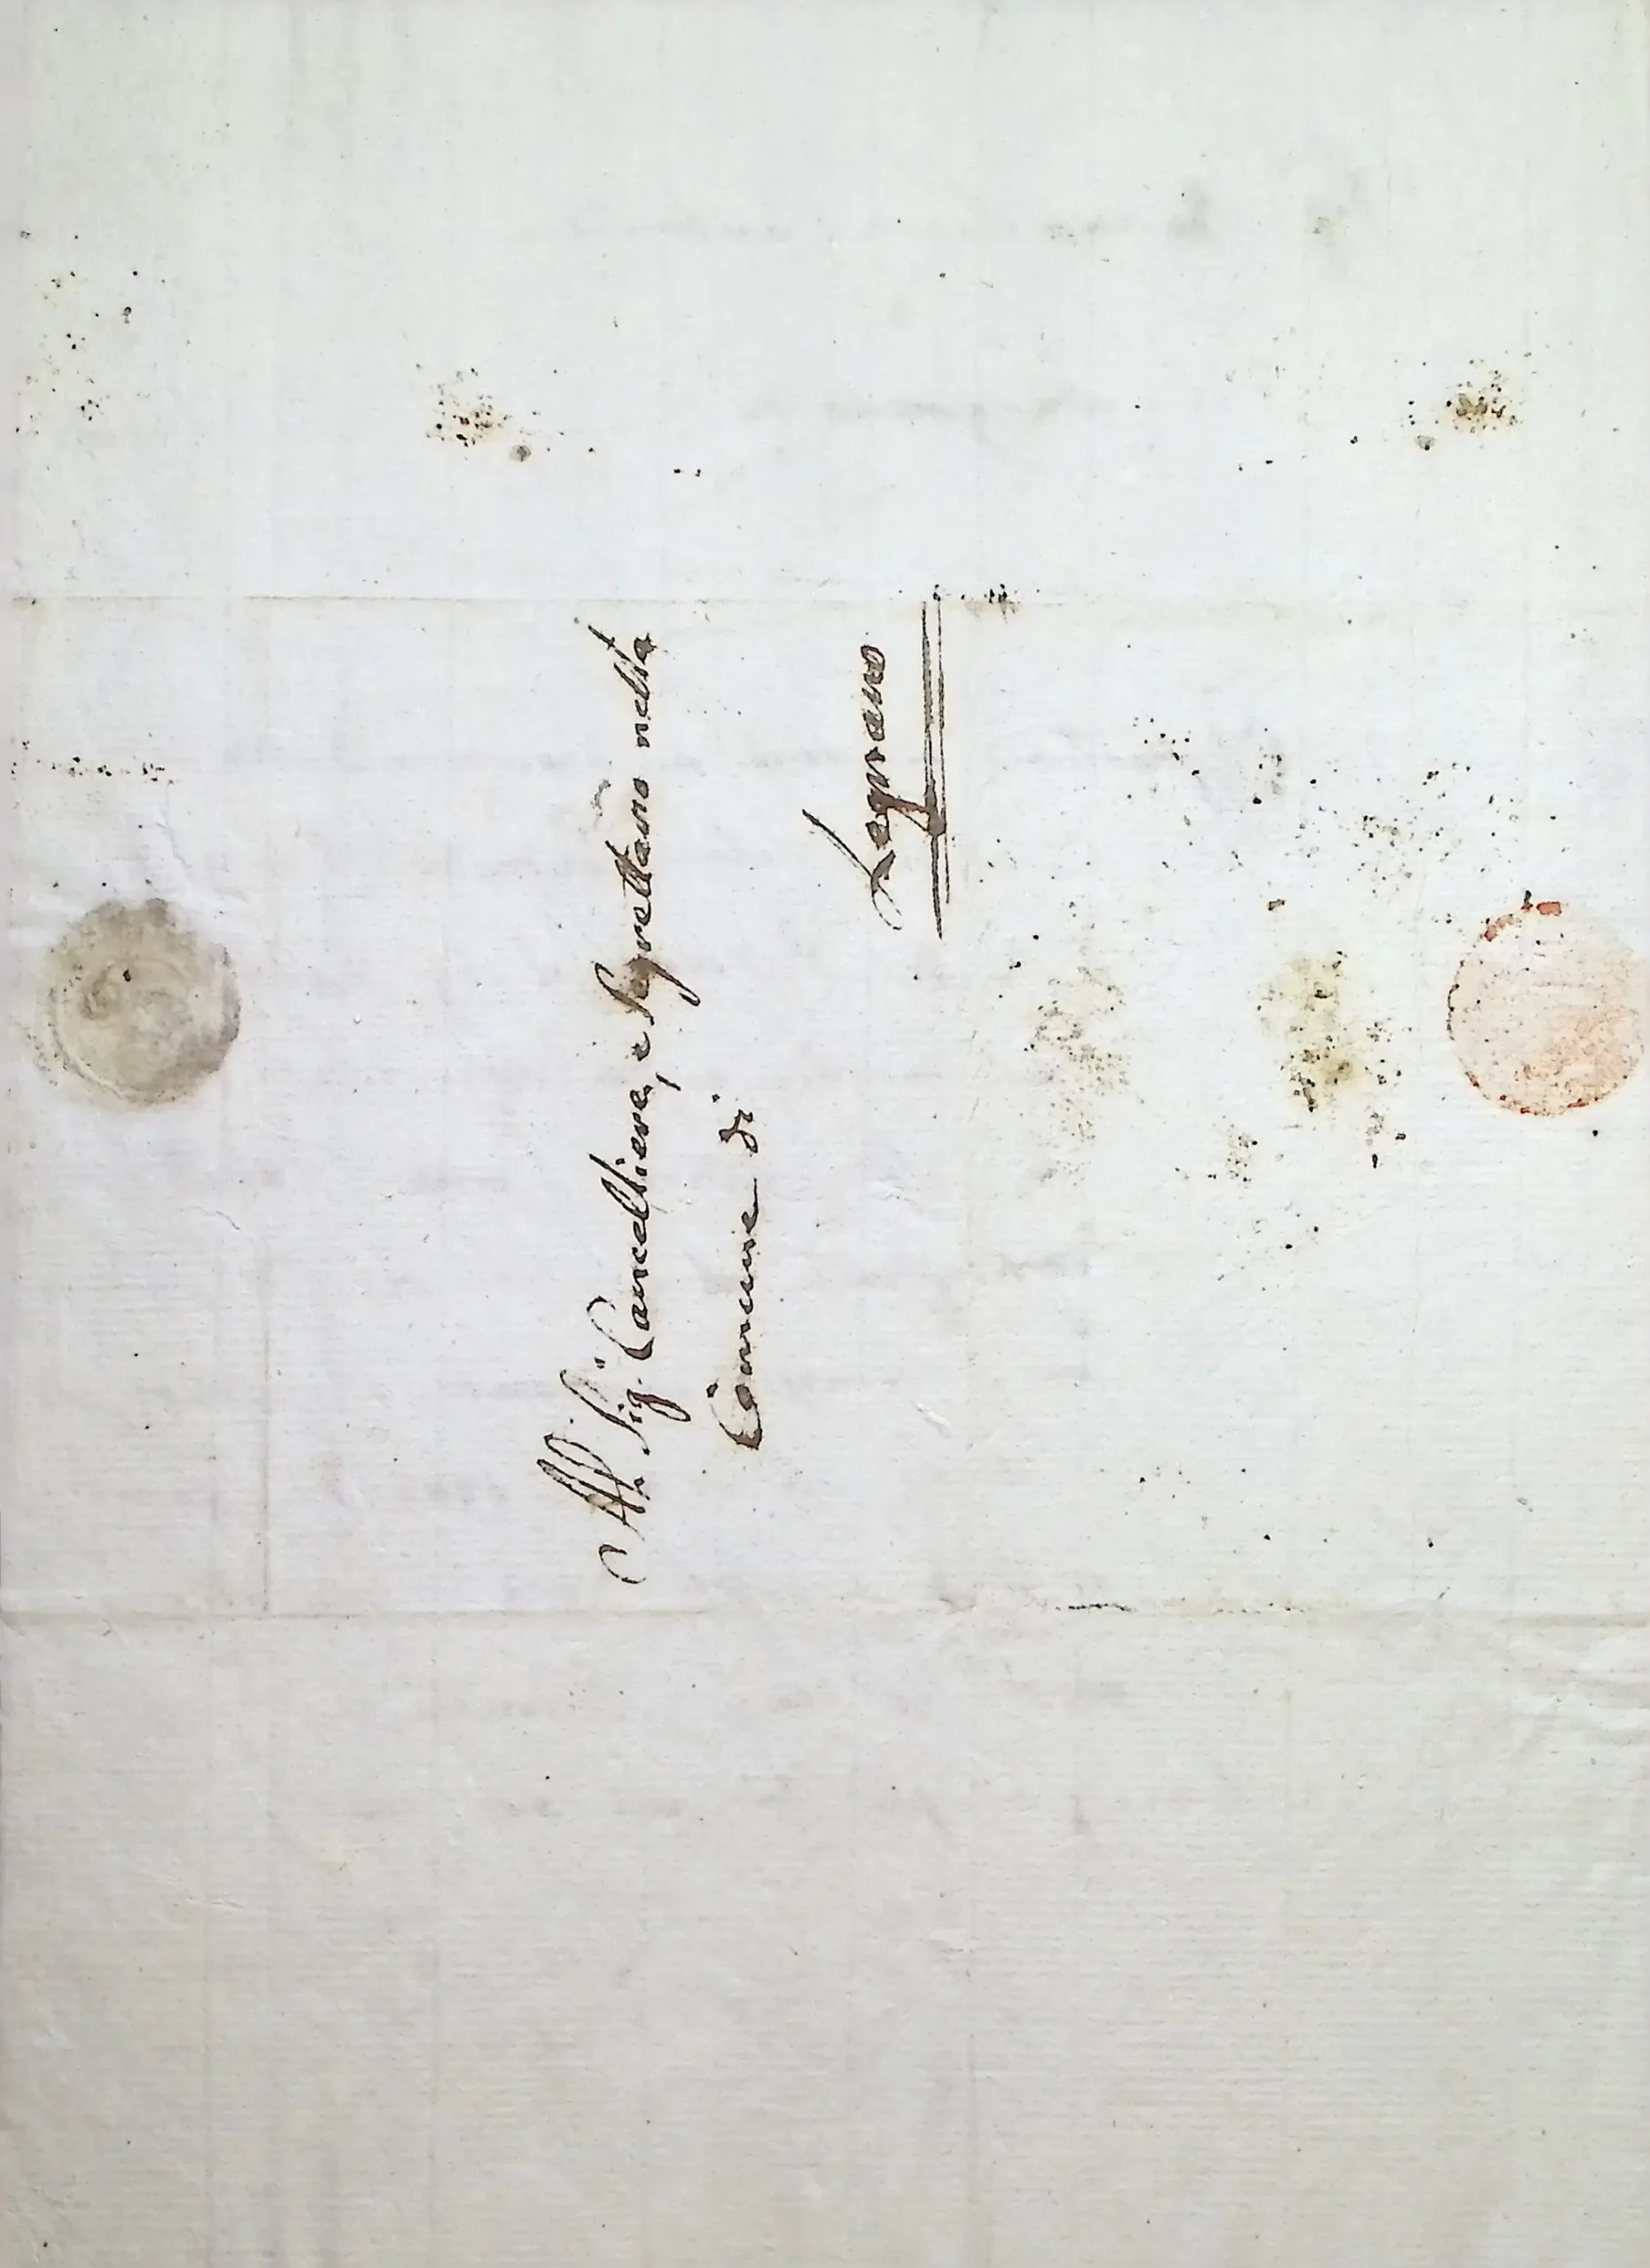 Al Sig.r Cancelliere, e Segrettario nella
Comune di
Legnano